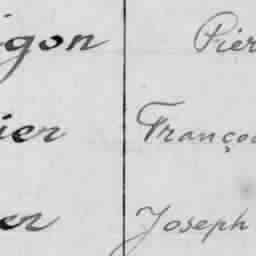 igon Pier
ier Françoi
er Joseph